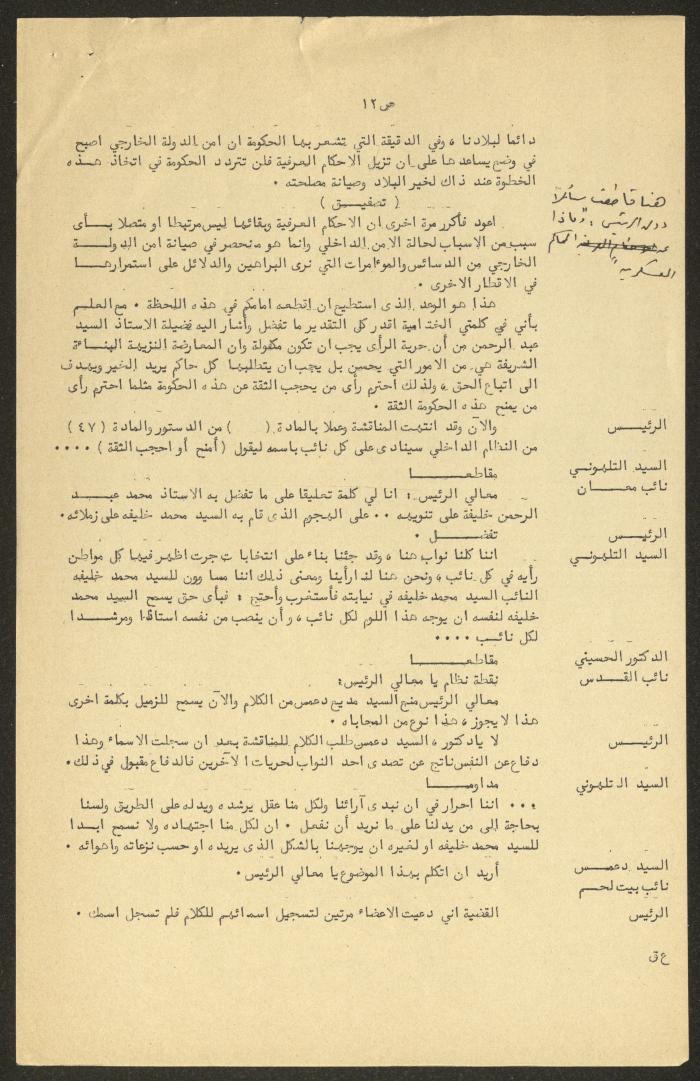 ص ١٢
دائما لبلادنا ، وفي الدقيقة التي تشعر بها الحكومة ان امن الدولة الخارجي اصبح
في وضع يساعدها على ان تزيل الاحكام العرفية فلن تتردد الحكومة في اتخاذ هــذه
الخطوة عند ذاك لخير البلاد وصيانة مصلحته .
( تصفيــق )
هنا قاطعت سائلا
دولة الرئيس : "وماذا
عن المحاكم
العسكرية"
اعود فأكرر مرة اخرى ان الاحكام العرفية وبقائها ليس مرتبطا او متصلا بــأى
سبب من الاسباب لحالة الامن الداخلي وانما هو منحصر في صيانة امن الدولــة
الخارجي من الدسائس والموءامرات التي نرى البراهين والدلائل على استمرارهــا
في الاقطار الاخرى .
هذا هو الوعد الذى استطيع ان اقطعه امامكم في هذه اللحظة . مع العلــم
بأني في كلمتي الختامية اقدر كل التقدير ما تفضل وأشار اليه فضيلة الاستاذ السيد
عبد الرحمن من أن حرية الرأى يجب ان تكون مكفولة وان المعارضة النزيهة الهنــاءة
الشريفة هي من الامور التي يحسن بل يجب ان يتطلبها كل حاكم يريد الخير ويهدف
الى اتباع الحق ، ولذلك احترم رأى من يحجب الثقة عن هذه الحكومة مثلما احترم رأى
من يمنح هذه الحكومة الثقة .
الرئيــس والآن وقد انتهت المناقشة وعملا بالمادة ( ) من الدستور والمادة ( ٤٧ )
من النظام الداخلي سينادى على كل نائب باسمه ليقول ( أمنح أو احجب الثقة ) ....
السيد التلهونـي مقاطعــا
نائب معــان معالي الرئيس : انا لي كلمة تعليقا على ما تفضل به الاستاذ محمد عبــد
الرحمن خليفة على تنويهه .. على الهجوم الذى قام به السيد محمد خليفه على زملائه.
الرئيــس تفضــل .
السيد التلهوني اننا كلنا نواب هنا ، وقد جئنا بناء على انتخابات جرت اظهر فيها كل مواطن
رأيه في كل نائب ، ونحن هنا لنا رأينا ومعنى ذلك اننا مساوون للسيد محمد خليفه
النائب السيد محمد خليفه في نيابته فأستغرب وأحتج : فبأى حق يسمح السيد محمد
خليفه لنفسه ان يوجه هذا اللوم لكل نائب ، و أن ينصب من نفسه استاذا ومرشــدا
لكل نائــب ....
الدكتور الحسيني مقاطعــا
نائب القــدس نقطة نظام يا معالي الرئيس:
معالي الرئيس منح السيد مديح دعمس من الكلام والآن يسمح للزميل بكلمة اخرى
هذا لا يجوز ، هذا نوع من المحاباه .
الرئيــس لا يا دكتور ، السيد دعمس طلب الكلام للمناقشة بعد ان سجلت الاسماء وهذا
دفاع عن النفس ناتج عن تصدى احد النواب لحريات الآخرين فالدفاع مقبول في ذلك.
السيد التلهوني مداومــا
... اننا احرار في ان نبدى آرائنا ولكل منا عقل يرشده ويدله على الطريق ولسنا
بحاجة إلى من يدلنا على ما نريد أن نفعل . ان لكل منا اجتهاده ولا نسمح ابــدا
للسيد محمد خليفه او لغيره ان يوجهنا بالشكل الذى يريده او حسب نزعاته واهوائه .
السيد دعمــس أريد ان اتكلم بهذا الموضوع يا معالي الرئيس.
نائب بيت لحــم
الرئيس القضية اني دعيت الاعضاء مرتين لتسجيل اسمائهم للكلام فلم تسجل اسمك .
ع ق